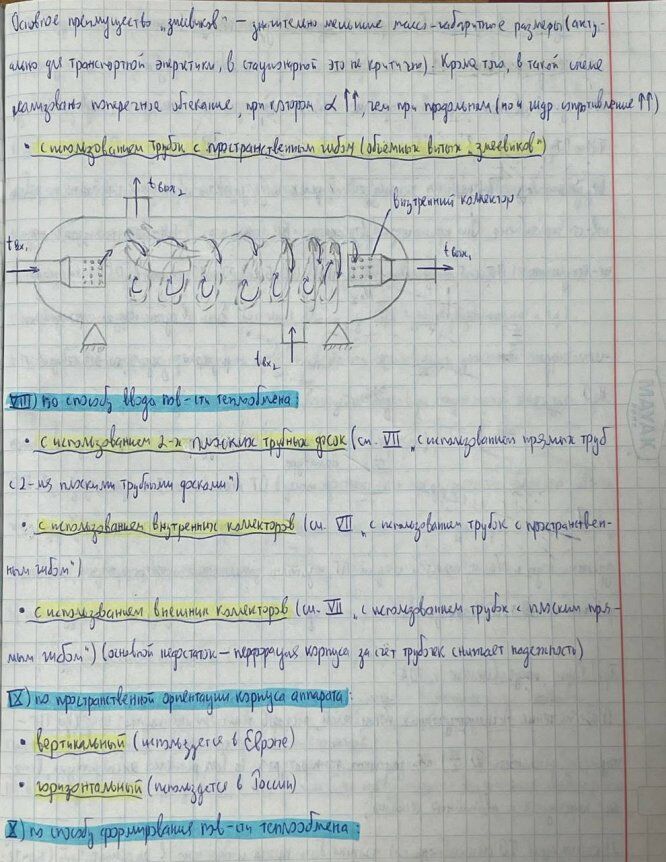 Основное преимущество „змеевиков" – значительно меньшие массо-габаритные размеры (акту-
ально для транспортной энергетики, в стационарной это не критично). Кроме того, в такой схеме
реализовано поперечное обтекание, при котором α ↑↑, чем при продольном (но и гидр. сопротивление ↑↑)
• с использованием трубок с пространственным гибом (объемных витых „змеевиков")
tвых₂
внутренний коллектор
tвх₁
tвых₁
tвх₂
VIII) по способу ввода пов-сти теплообмена:
• с использованием 2-х плоских трубных досок (см. VII „с использованием прямых труб
с 2-мя плоскими трубными досками")
• с использованием внутренних коллекторов (см. VII „с использованием трубок с пространствен-
ным гибом")
• с использованием внешних коллекторов (см. VII „с использованием трубок с плоским пря-
мым гибом") (основной недостаток – перфорация корпуса за счёт трубочек снижает надежность)
IX) по пространственной ориентации корпуса аппарата:
• вертикальный (используется в Европе)
• горизонтальный (используется в России)
X) по способу формирования пов-сти теплообмена:
MAYAK